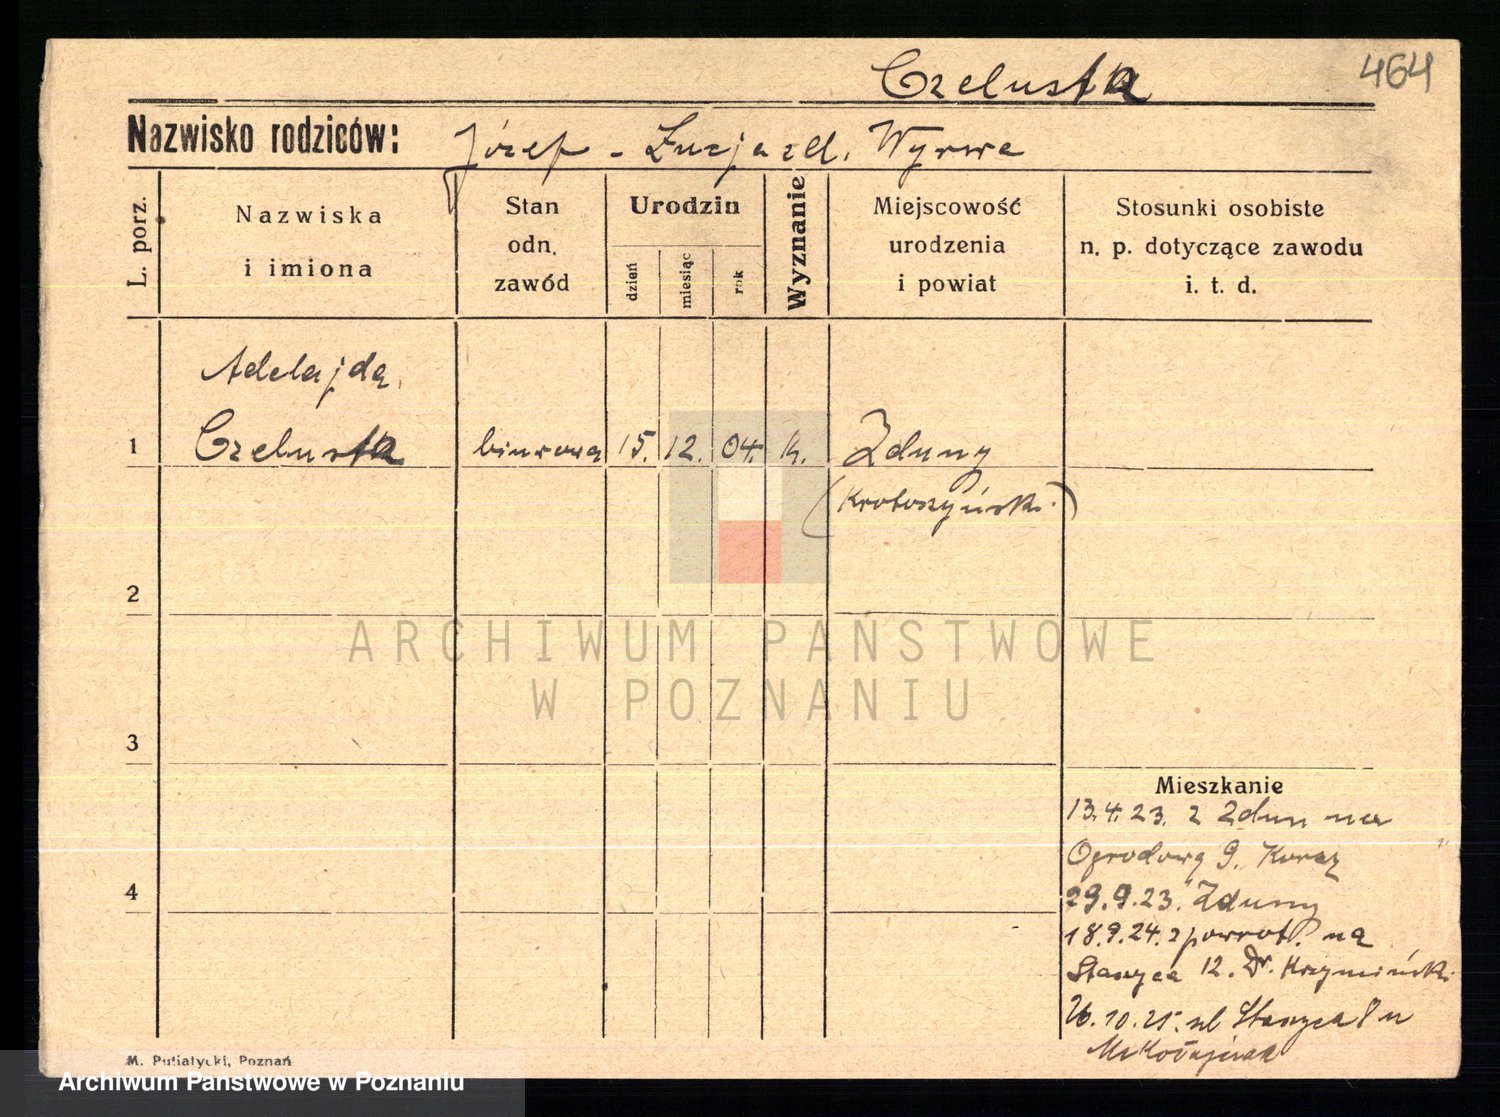 464
Czelusta
Nazwisko rodziców: Józef - Łucja zd. Wyrwa
L. porz.
Nazwiska
i imiona
Stan
odn.
zawód
Urodzin
dzień
miesiąc
rok
Wyznanie
Miejscowość
urodzenia
i powiat
Stosunki osobiste
n. p. dotyczące zawodu
i. t. d.
Adelajda
1 Czelusta biurowa 15. 12. 04. k. Zduny
(Krotoszyński.)
2
ARCHIWUM PAŃSTWOWE
W POZNANIU
3
Mieszkanie
13.4.23. z Zdun na
Ogrodową 9.
4
29.9.23. Zduny
18.9.24. z powrot. na
Staszyca 12. Dr. Krzymińsk.
26.10.25. ul Staszyca 8 u
Mikołajczak
M. Putiatycki, Poznań
Archiwum Państwowe w Poznaniu